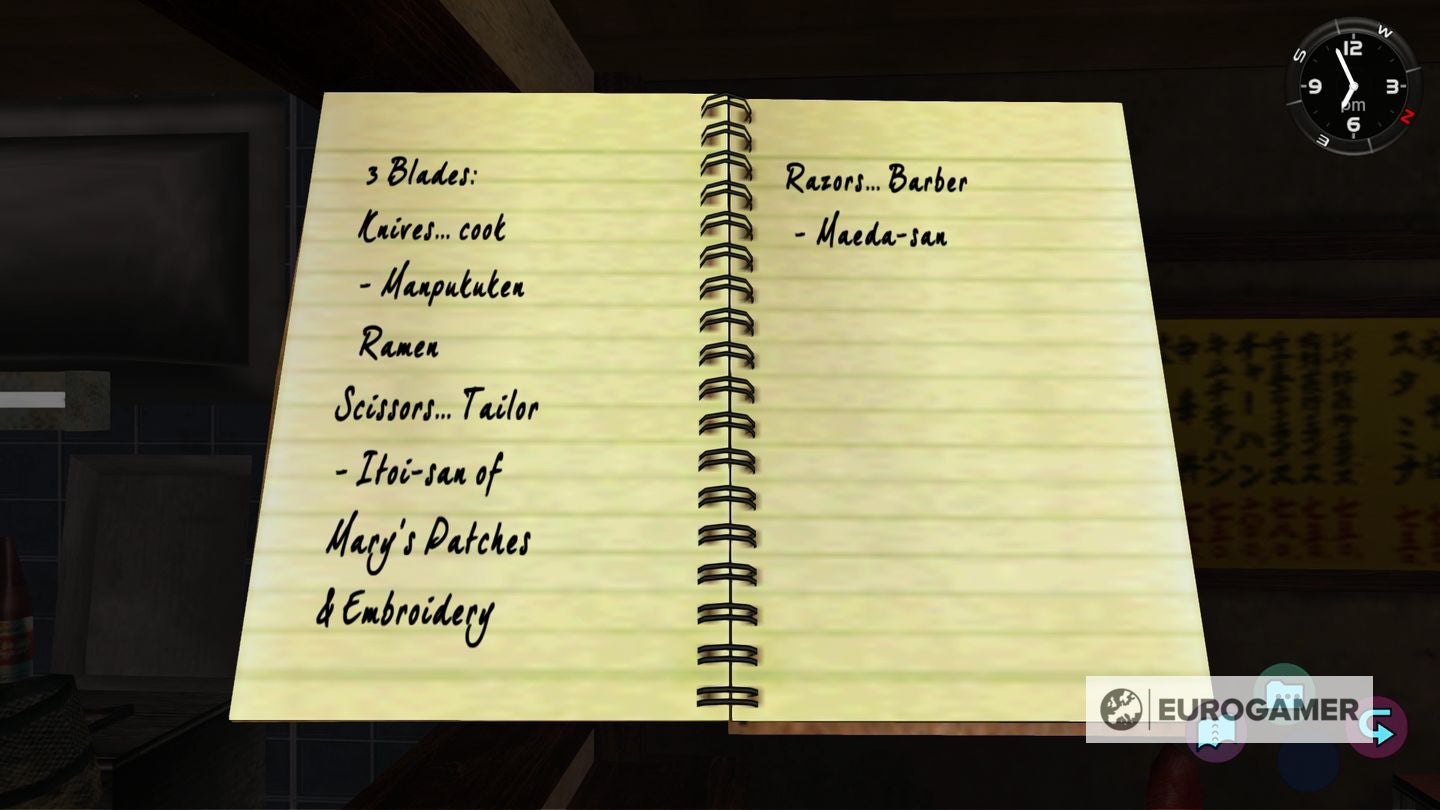 3 Blades:
Knives... cook
- Manpukuken
Ramen
Scissors... Tailor
- Itoi-san of
Mary's Patches
& Embroidery
Razors... Barber
- Maeda-san
W
12
S
9
3
pm
N
6
E
EUROGAMER